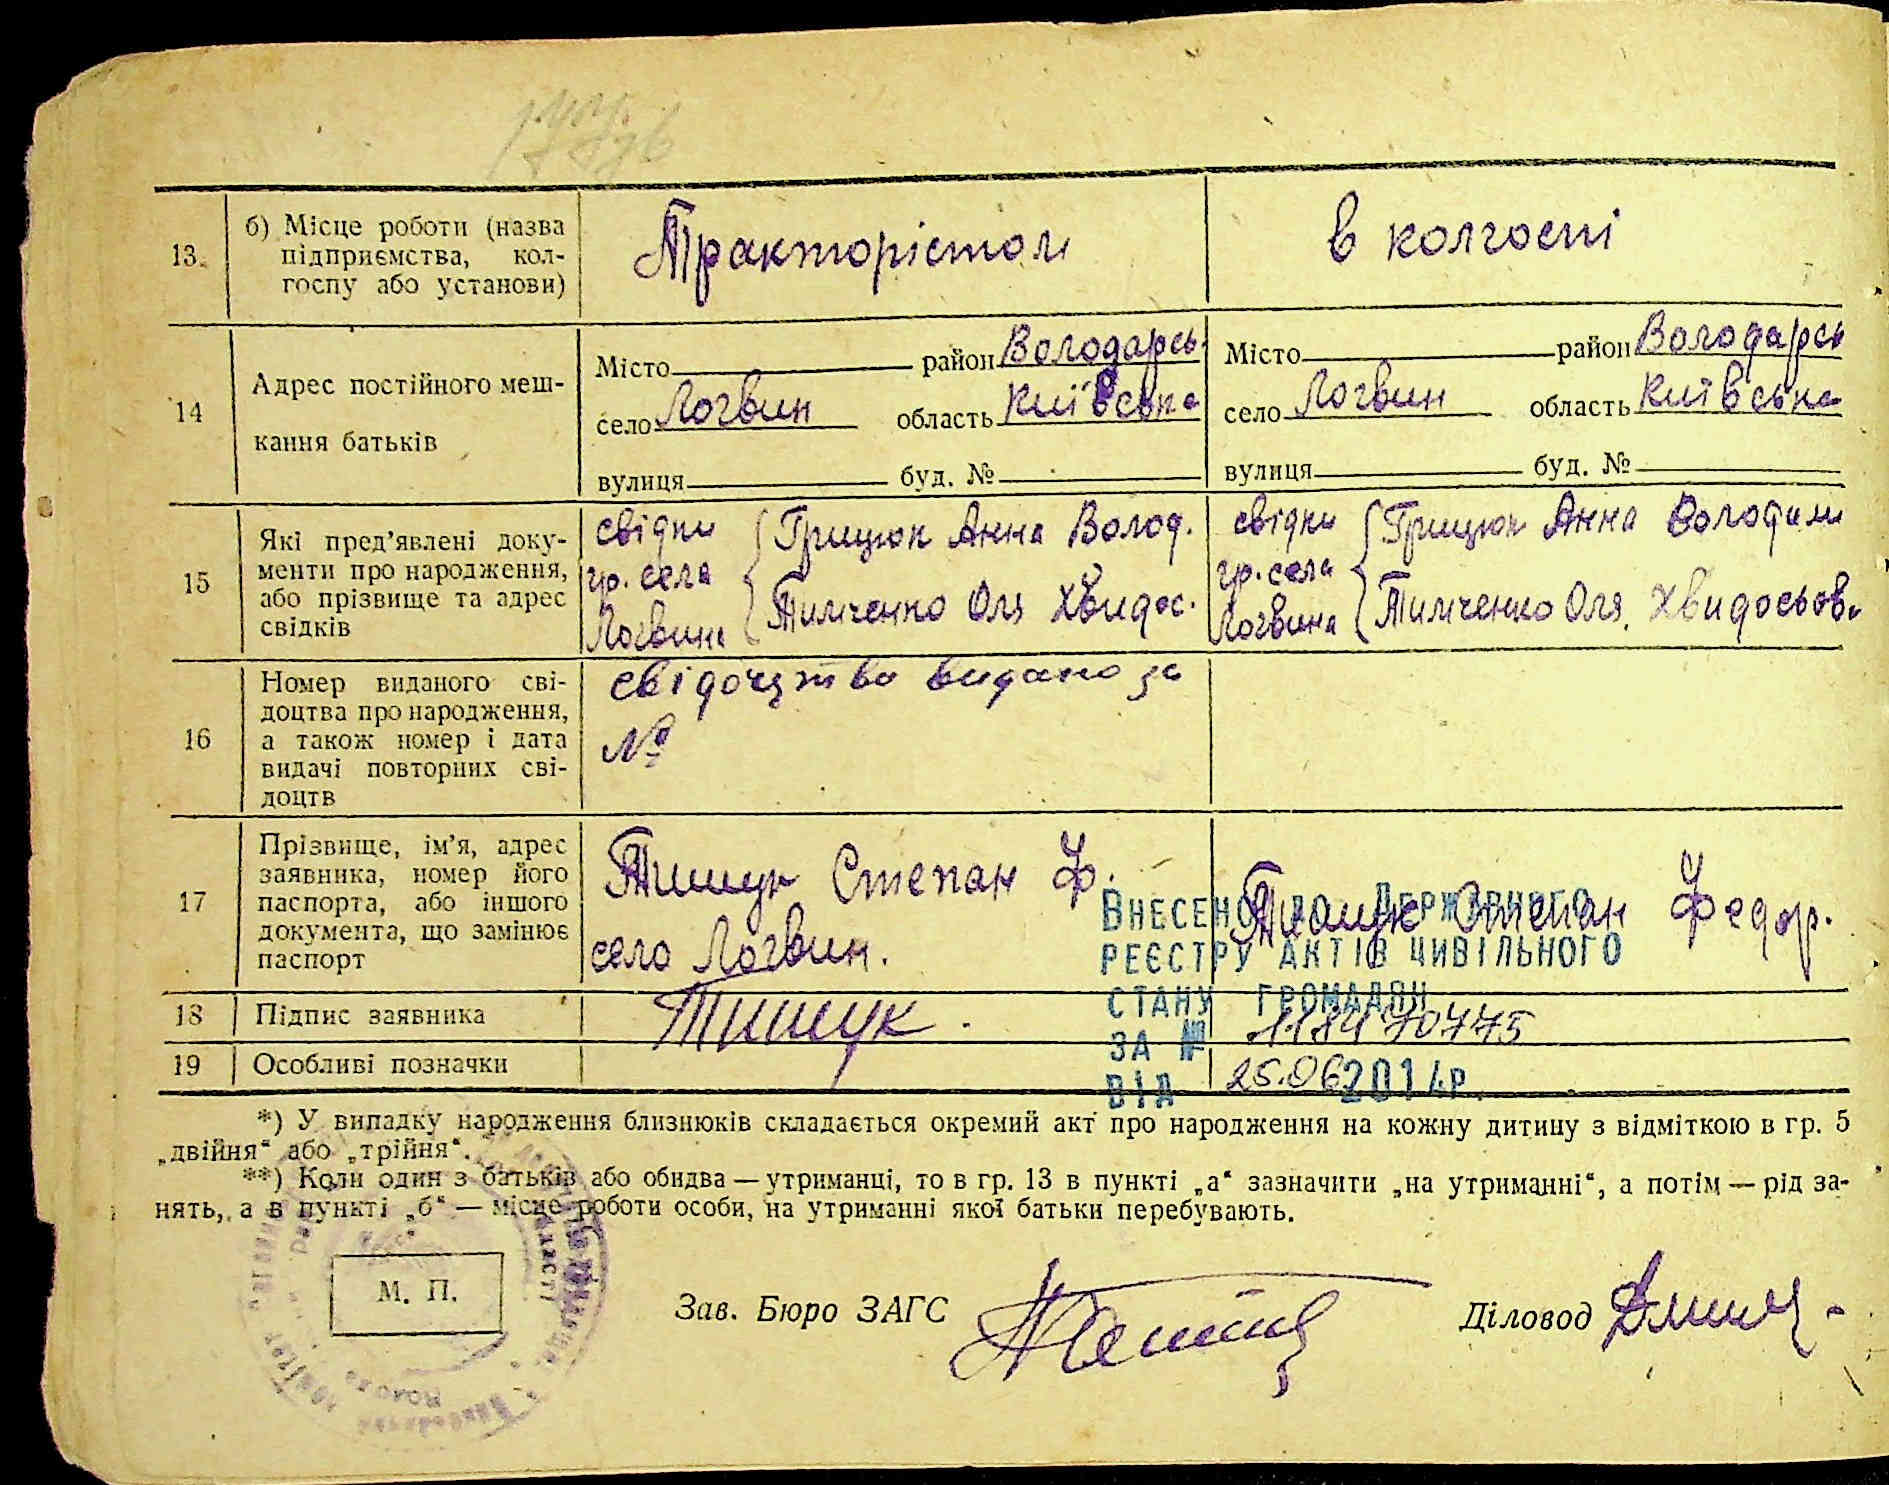 13.
б) Місце роботи (назва
підприємства, кол-
госпу або установи)
Тракторістом
в колгоспі
14
Адрес постійного меш-
кання батьків
Місто район Володарсь.
село Логвин область Київська
вулиця буд. №
Місто район Володарсь
село Логвин область Київська
вулиця буд. №
15
Які пред'явлені доку-
менти про народження,
або прізвище та адрес
свідків
свідки
гр. села
Логвина
Грицюк Анна Волод.
Тимченко Оля Хвидос.
свідки
гр. села
Логвина
Грицюк Анна Володими
Тимченко Оля Хвидосьов.
16
Номер виданого сві-
доцтва про народження,
а також номер і дата
видачі повторних сві-
доцтв
свідоцтво видано за
№
17
Прізвище, ім'я, адрес
заявника, номер його
паспорта, або іншого
документа, що замінює
паспорт
Тишук Степан Ф.
село Логвин.
Тишук Степан Федор.
Внесено до Державного
реєстру актів цивільного
стану громадян
за № 11847 0775
від 25.06 2014р.
18
Підпис заявника
Тишук.
19
Особливі позначки
*) У випадку народження близнюків складається окремий акт про народження на кожну дитину з відміткою в гр. 5
„двійня“ або „трійня“.
**) Коли один з батьків або обидва — утриманці, то в гр. 13 в пункті „а“ зазначити „на утриманні“, а потім — рід за-
нять, а в пункті „б“ — місце роботи особи, на утриманні якої батьки перебувають.
М. П.
Зав. Бюро ЗАГС
Діловод